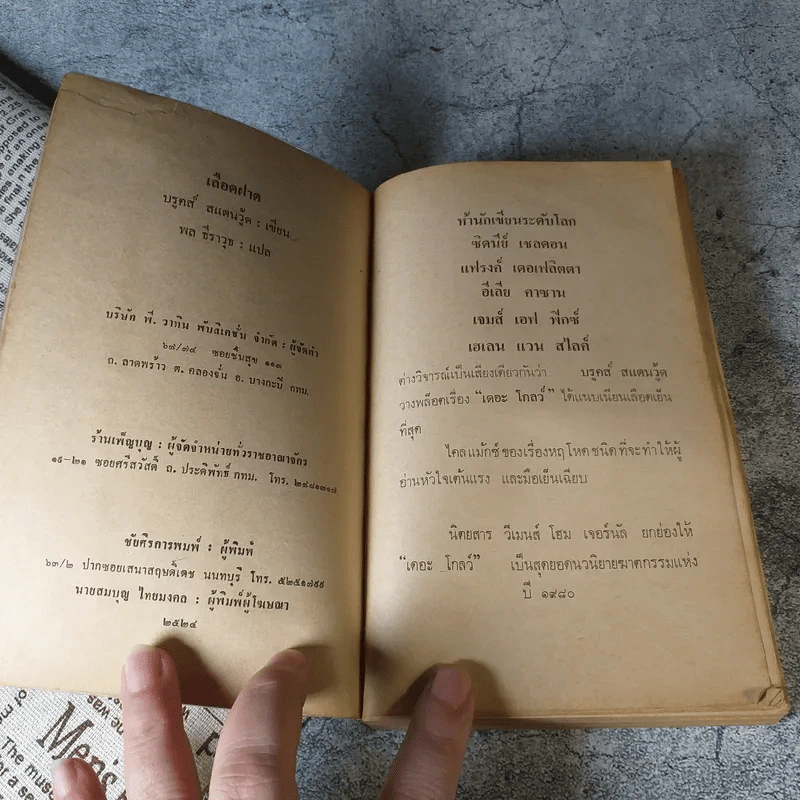 เลือดฝาด
บรูคส์ สแตนวู้ด : เขียน
พล ธีราวุธ : แปล
บริษัท พี. วาทิน พับลิเคชั่น จำกัด : ผู้จัดทำ
๖๙/๙๔ ซอยชื่นสุข ๑๑๓
ถ. ลาดพร้าว ต. คลองจั่น อ. บางกะปิ กทม.
ร้านเพ็ญบุญ : ผู้จัดจำหน่ายทั่วราชอาณาจักร
๑๙-๒๑ ซอยศรีสวัสดิ์ ถ. ประดิพัทธ์ กทม. โทร. ๒๗๘๑๓๑๗
ชัยศิริการพิมพ์ : ผู้พิมพ์
๖๓/๒ ปากซอยเสนาสฤษดิ์เดช นนทบุรี โทร. ๕๒๕๑๗๙๙
นายสมบุญ ไทยมงคล : ผู้พิมพ์ผู้โฆษณา
๒๕๒๔
ห้านักเขียนระดับโลก
ซิดนีย์ เชลดอน
แฟรงค์ เดอเฟลิตตา
อีเลีย คาซาน
เจมส์ เอฟ ฟิกซ์
เฮเลน แวน สไลค์
ต่างวิจารณ์เป็นเสียงเดียวกันว่า บรูคส์ สแตนวู้ด
วางพล็อตเรื่อง “เดอะ โกลว์” ได้แนบเนียนเลือดเย็น
ที่สุด
ไคลแม้กซ์ของเรื่องหฤโหดชนิดที่จะทำให้ผู้
อ่านหัวใจเต้นแรง และมือเย็นเฉียบ
นิตยสาร วีเมนส์ โฮม เจอร์นัล ยกย่องให้
“เดอะ โกลว์” เป็นสุดยอดนวนิยายฆาตกรรมแห่ง
ปี ๑๙๘๐
Men's